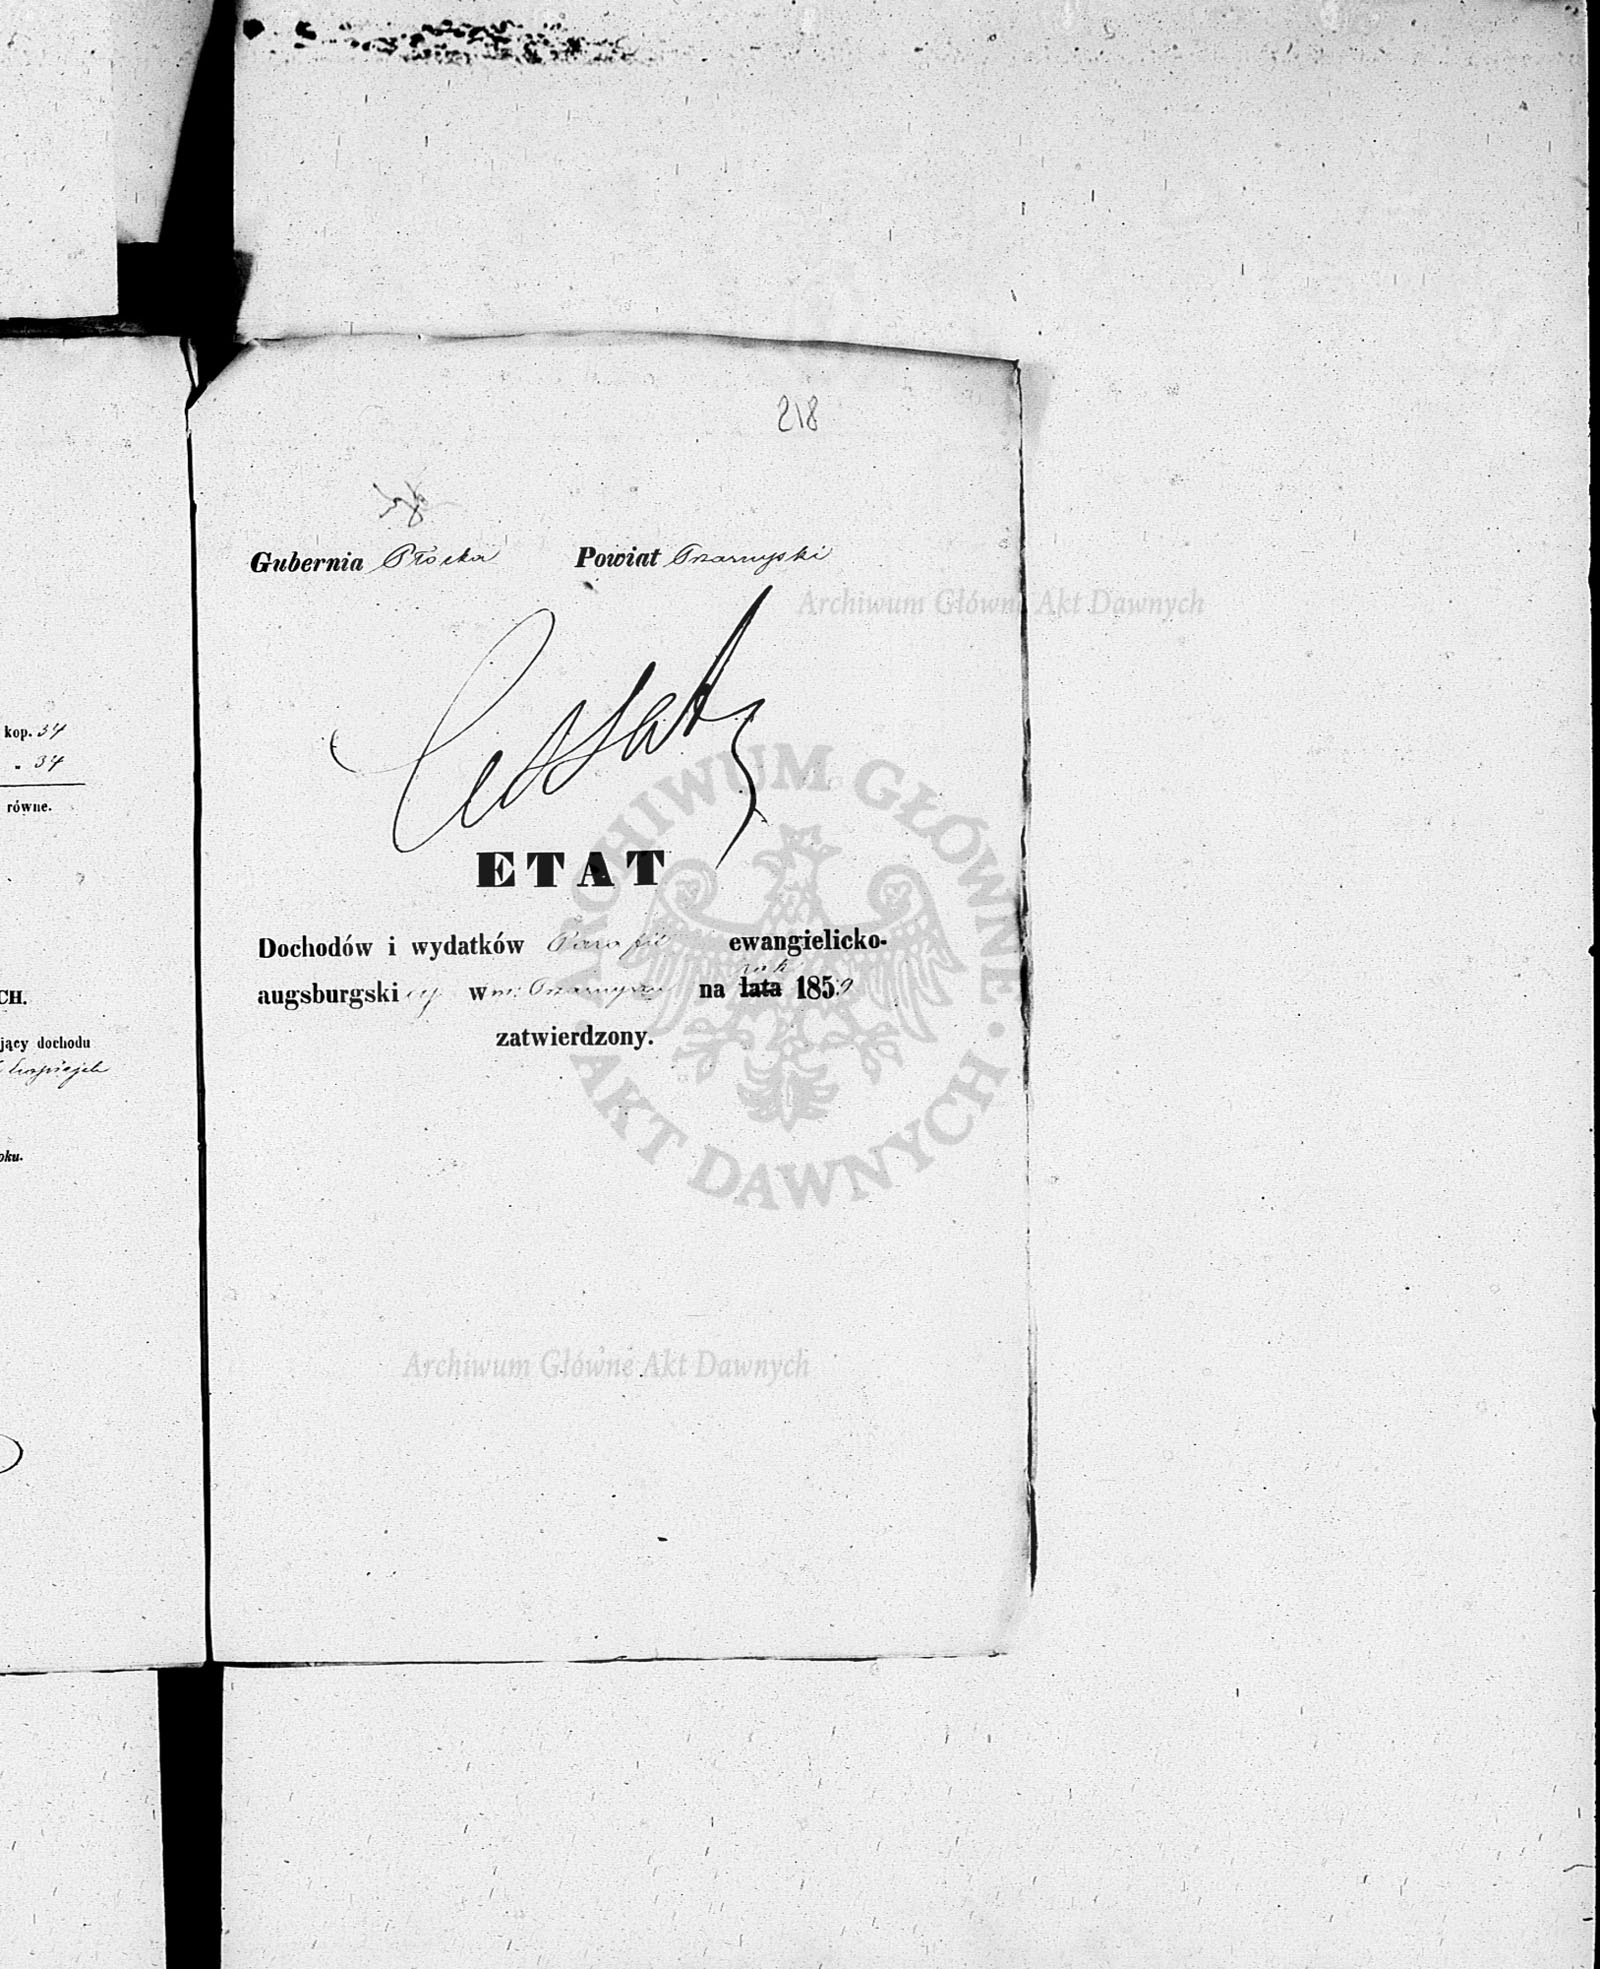 218
Gubernia Płocka Powiat Przasnyski
Cessat
ETAT
Dochodów i wydatków Parafii ewangielicko-
rok
augsburgskiej w m: Przasnyszu na lata 1859
zatwierdzony.
kop. 34
" 34
równe.
CH.
jący dochodu
oku.
Archiwum Główne Akt Dawnych
ARCHIWUM GŁÓWNE AKT DAWNYCH
Archiwum Główne Akt Dawnych